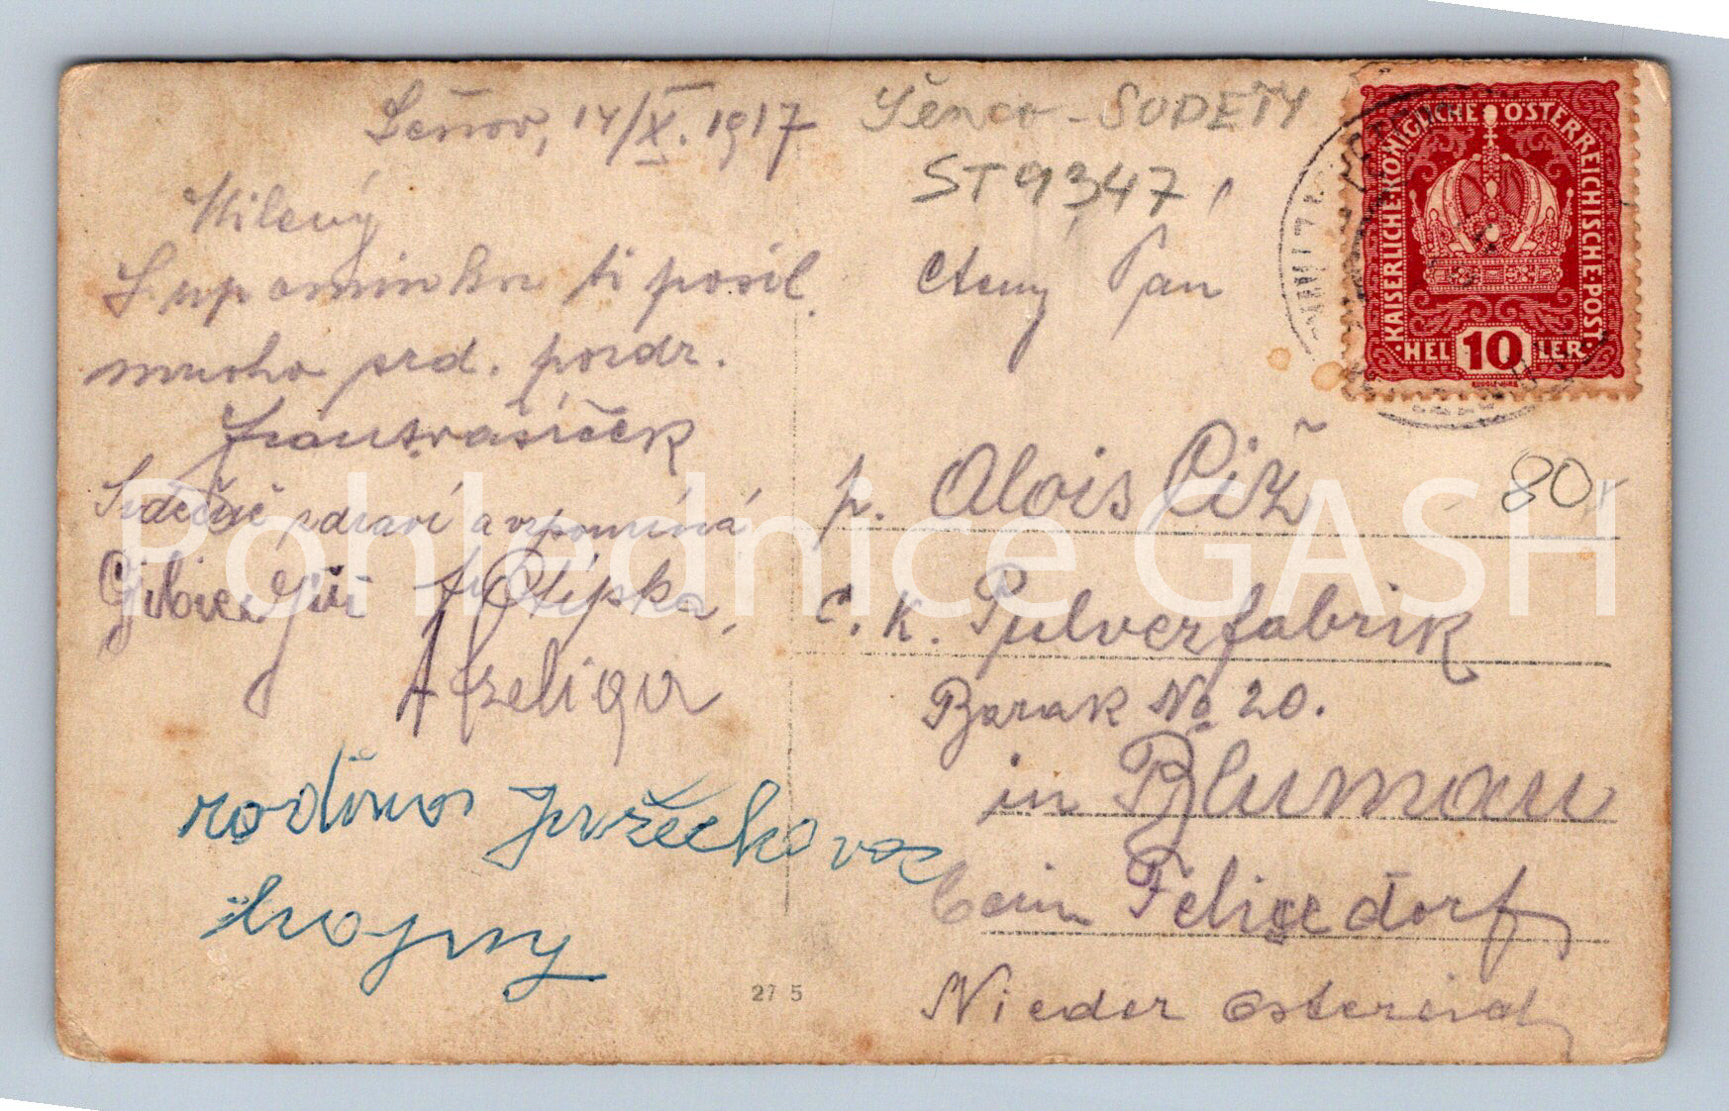 Šenov, 14/X. 1917
Milený
Z upomínkou ti posíl.
mnoho srd. pozdr.
Srdečně zdraví a vzpomíná
Jiří Otipka,
A Szeliga
rodina Jurečkova
Hrojny
27 5
Šenov - SUDETY
ST 9347
Ctený Pan
p. Alois Číž
C. K. Pulverfabrik
Barak No 20.
in Blumau
beim Felixdorf
Nieder Östereich
80,-
KAISERLICHE KÖNIGLICHE ÖSTERREICHISCHE POST
10
HELLER
Pohlednice GASH